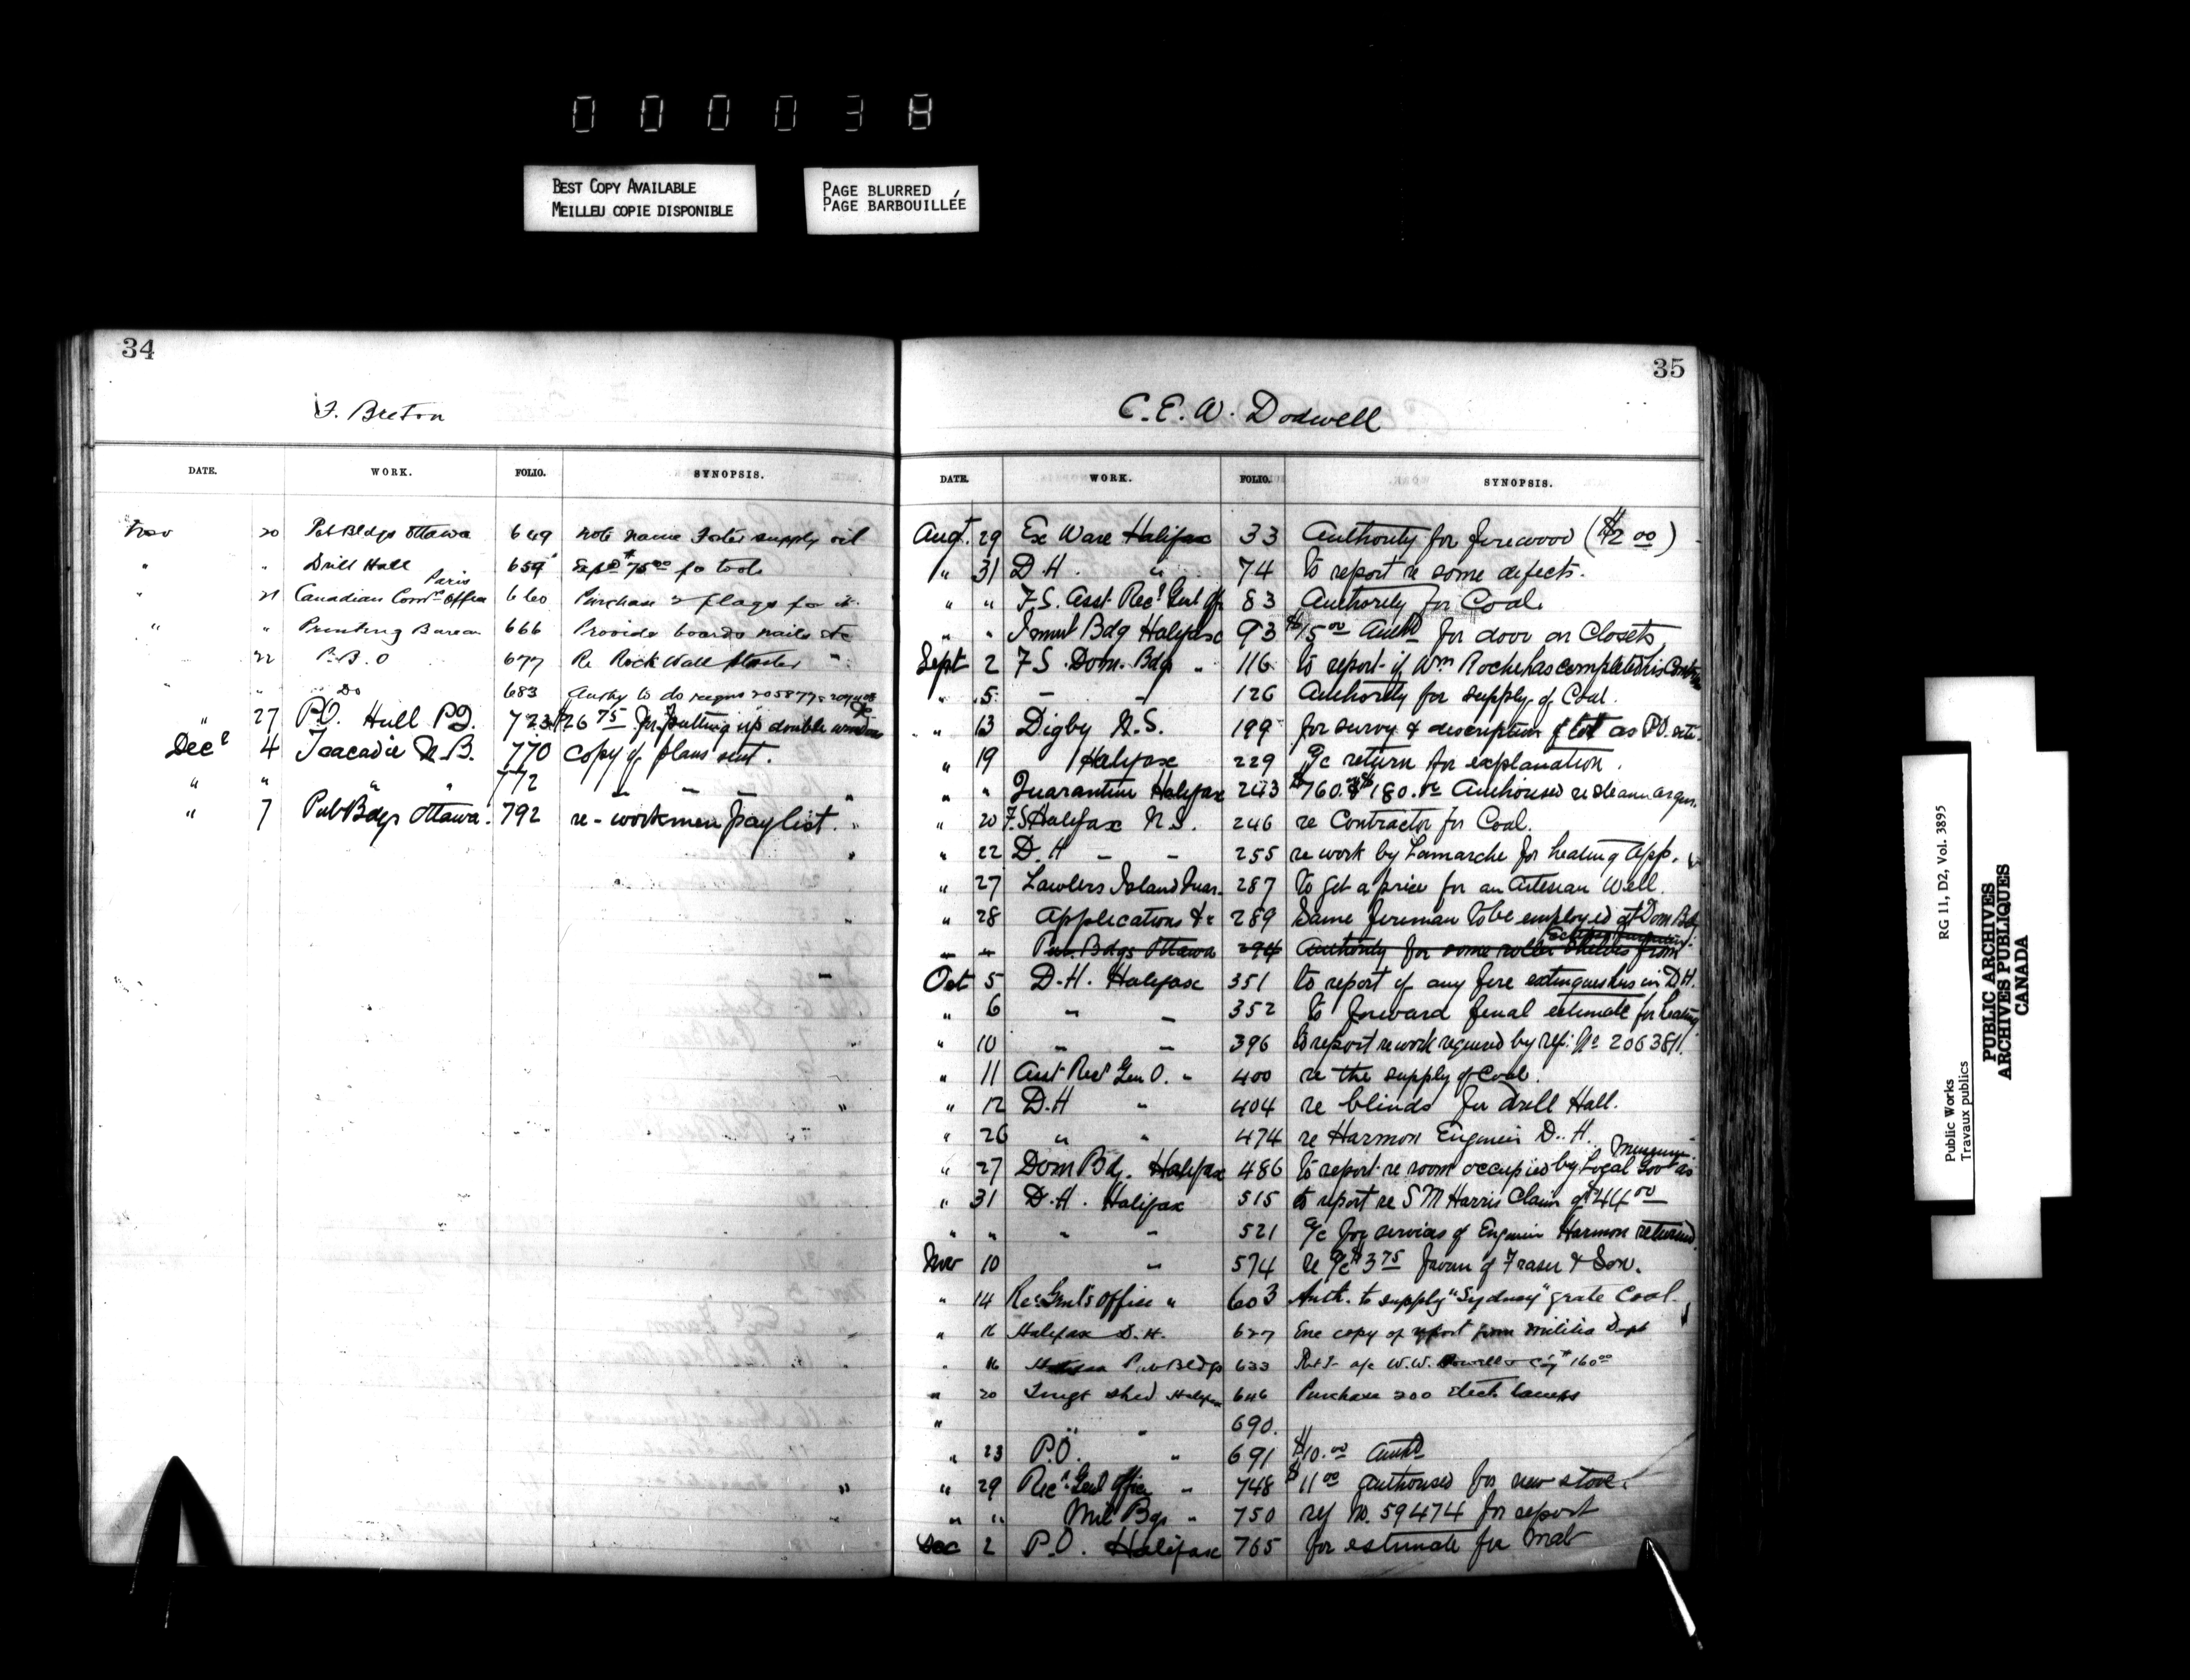 000038
BEST COPY AVAILABLE
MEILLEU COPIE DISPONIBLE
PAGE BLURRED
PAGE BARBOUILLÉE
34
F. Breton
DATE. WORK. FOLIO. SYNOPSIS.
Nov 20 Pub Bldgs Ottawa 649 note name Foster supply oil
" " Drill Hall 659 Expd $75.00 fo tools
" 21 Canadian Comr Office Paris 660 Purchase 2 flags for it
" " Printing Bureau 666 Provide boards nails &c
22 P.B.O 677 Re Rock Wall Plaster
" " Do 683 Authy to do
" 27 P.O. Hull P.Q. 723 $26.75 for putting up double windows
Decr 4 Tracadie N.B. 770 Copy of plans sent.
" " " " 772 — — —
" 7 Pub Bdgs Ottawa. 792 re - workmen paylist.
35
C.E.W. Dodwell
DATE. WORK. FOLIO. SYNOPSIS.
Augt. 29 Ex Ware Halifax 33 Authority for firewood ($2.00)
" 31 D.H. " 74 to report re some defects.
" " F.S. Asst. Recr Genl Off 83 Authority for Coal.
" " Immt Bdg Halifax 93 $15.00 Authd for door on Closets
Sept 2 F.S. Dom. Bdg " 116 to report if Wm Roche has completed his Contract
" 5 — — 126 Authority for supply of Coal.
" 13 Digby N.S. 199 for survey & description of lot as P.O. site.
" 19 Halifax 229 a/c return for explanation.
" " Quarantine Halifax 243 $760. & $180.00 Authorised re
" 20 F.S Halifax N.S. 246 re Contractor for Coal.
" 22 D.H — — 255 re work by Lamarche for heating app.
" 27 Lawlers Island Quar. 287 to get a price for an Artesian Well.
" 28 Applications &c 289 Same fireman to be employed at Dom Bdg
" " Pub. Bdgs Ottawa 294 Authority for some roller shelves from
Oct 5 D.H. Halifax 351 to report if any fire extinguishers in D.H.
" 6 " — 352 to forward final estimate for heating
" 10 — — 396 to report re work required by ref: No 206381.
" 11 Asst Recr Gen O. " 400 re the supply of Coal.
" 12 D.H " 404 re blinds for Drill Hall.
" 26 " " 474 re Harmon Engineer D.H.
" 27 Dom Bdg. Halifax 486 to report re room occupied by Local Govt as Museum.
" 31 D.H. Halifax 515 to report re S M Harris Claim of $44.00
" " " — 521 a/c for services of Engineer Harmon returned.
Nov 10 " 574 re a/c $3.75 favour of Fraser & Son.
" 14 Recr Genl's Office " 603 Auth. to supply "Sydney" grate Coal.
" 16 Halifax D.H. 627 Enc copy of report from Militia Dept
" 16 Pub Bldgs 633 Ret'g a/c W.W. Howell & Coy $160.00
" 20 Imgt shed Halifax 646 Purchase 200 elect lamps
" " " 690.
" 23 P.O. " 691 $10.00 Authd
" 29 Recr Genl Office " 748 $11.00 authorised for new stove.
" " Mil Bgs " 750 ref No. 59474 for report
Dec 2 P.O. Halifax 765 for estimate for Mat
Public Works
Travaux publics
RG 11, D2, Vol. 3895
PUBLIC ARCHIVES
ARCHIVES PUBLIQUES
CANADA